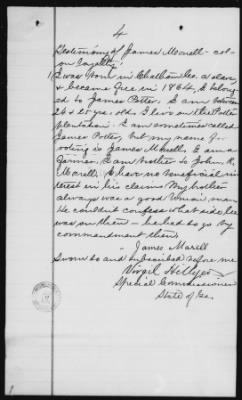 4
Testimony of James Morell - col
on loyalty:
I was born in Chatham Co. a slave
& became free in 1864. I belong
ed to James Potter. I am between
24 & 25 yrs. old. I live on the Potter
plantation. I am sometimes called
James Potter, but my name
is James Morell. I am a
farmer. I am brother to John R.
Morell. I have no beneficial in
terest in his claim. My brother
always was a good Union man.
He couldn't confess what side he
was on then - he had to go by
commandment then.
James Morell
Sworn to and subscribed before me
Virgil Hillyer
Special Commissioner
State of Ga.